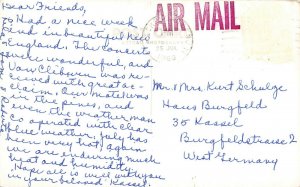 Dear Friends,
Had a nice week
end in beautiful New
England. The concerts
were wonderful, and
Van Cliburn was re-
ceived with great ac-
claim. Our hotel was
in the pines, and
even the weatherman
co operated with clear
blue weather. July has
been very hot, again
we are enduring much
heat and humidity.
Hope all is well with you
in your beloved Kassel.
AIR MAIL
Mr. & Mrs. Kurt Schulze
Haus Burgfeld
35 Kassel
Burgfeldstrasse 2
West Germany